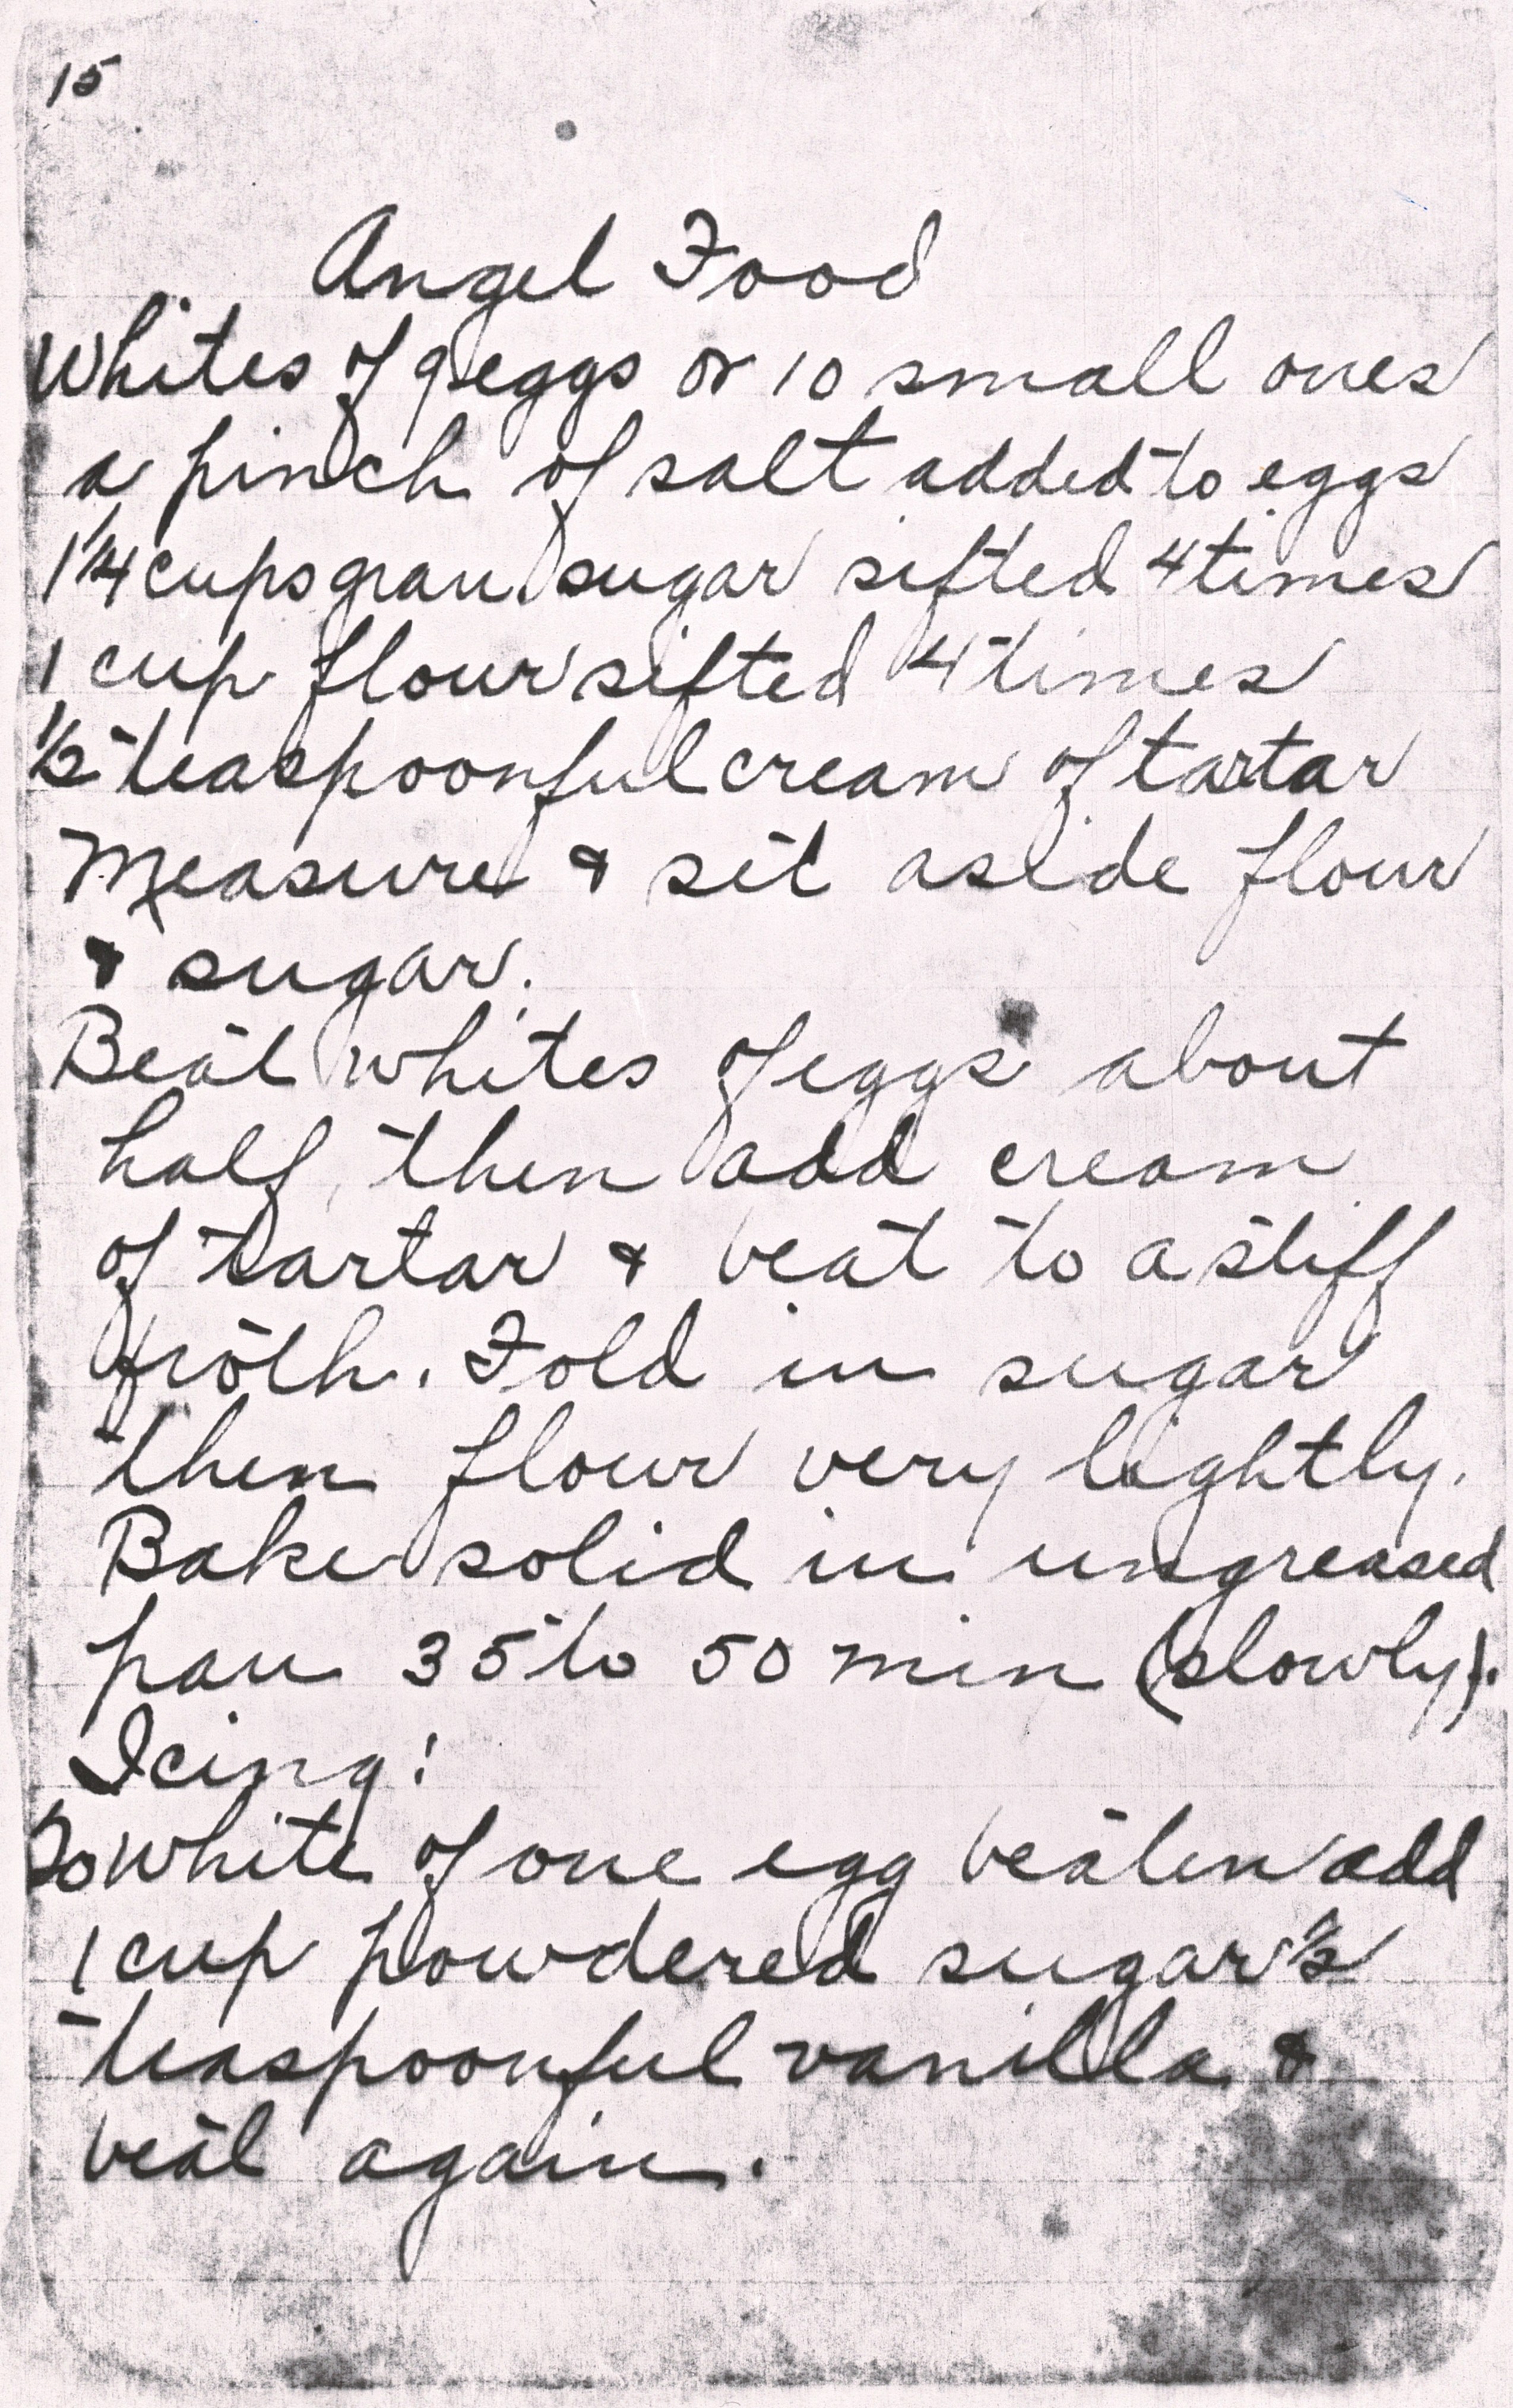 15
Angel Food
Whites of 9 eggs or 10 small ones
a pinch of salt added to eggs
1 1/4 cups gran. sugar sifted 4 times
1 cup flour sifted 4 times
1/2 teaspoonful cream of tartar
Measure & set aside flour
& sugar.
Beat whites of eggs about
half, then add cream
of tartar & beat to a stiff
froth. Fold in sugar
then flour very lightly.
Bake solid in ungreased
pan 35 to 50 min (slowly).
Icing:
To white of one egg beaten add
1 cup powdered sugar 1/2
teaspoonful vanilla &
beat again.